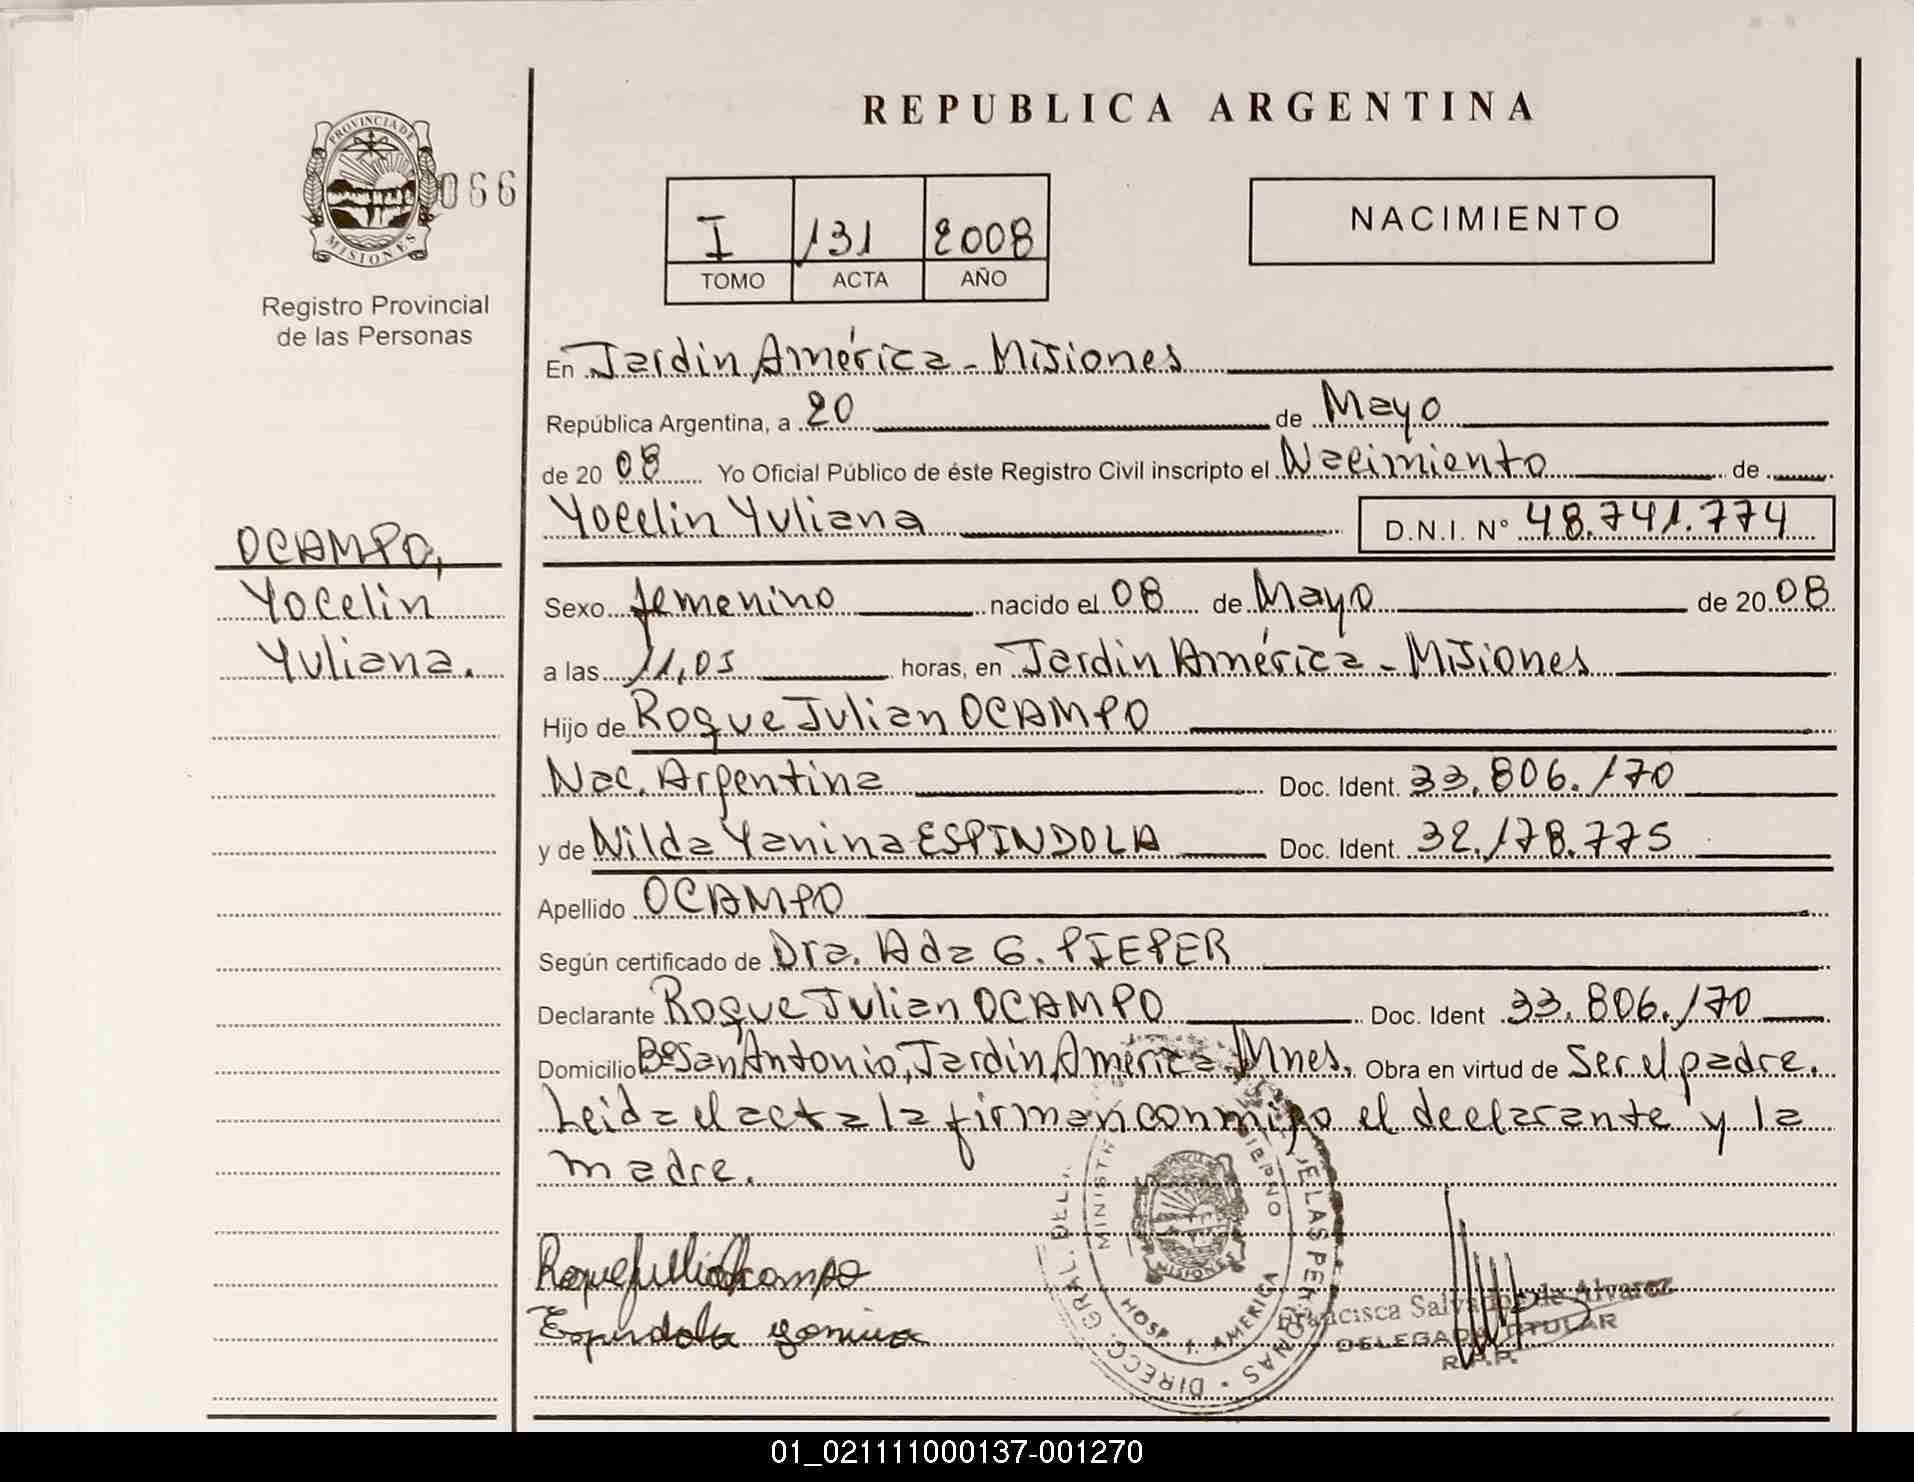 PROVINCIA DE
MISIONES
066
Registro Provincial
de las Personas
OCAMPO,
Yocelin
Yuliana.
REPUBLICA ARGENTINA
I 131 2008
TOMO ACTA AÑO
NACIMIENTO
En Jardin América - Misiones
República Argentina, a 20 de Mayo
de 20 08 Yo Oficial Público de éste Registro Civil inscripto el Nacimiento de
Yocelin Yuliana D.N.I. N° 48.741.774
Sexo femenino nacido el 08 de Mayo de 20 08
a las 11,05 horas, en Jardin América - Misiones
Hijo de Roque Julian OCAMPO
Nac. Argentina Doc. Ident. 33.806.170
y de Nilda Yanina ESPINDOLA Doc. Ident. 32.178.775
Apellido OCAMPO
Según certificado de Dra. Ada G. PIEPER
Declarante Roque Julian OCAMPO Doc. Ident 33.806.170
Domicilio Bº San Antonio, Jardin América Mnes. Obra en virtud de Ser el padre.
Leida el acta la firman conmigo el declarante y la
madre.
Roque Julian Ocampo
Espindola yanina
DIRECC. GRAL. DEL
DE LAS PERSONAS
MINISTR
GOBIERNO
MISIONES
HOSP J. AMERICA
Francisca Salvador de Alvarez
DELEGADA TITULAR
R.P.P.
01_021111000137-001270